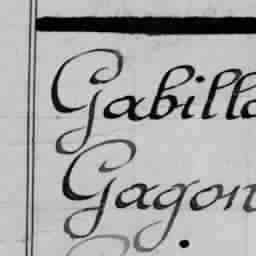 Gabilla
Gagon